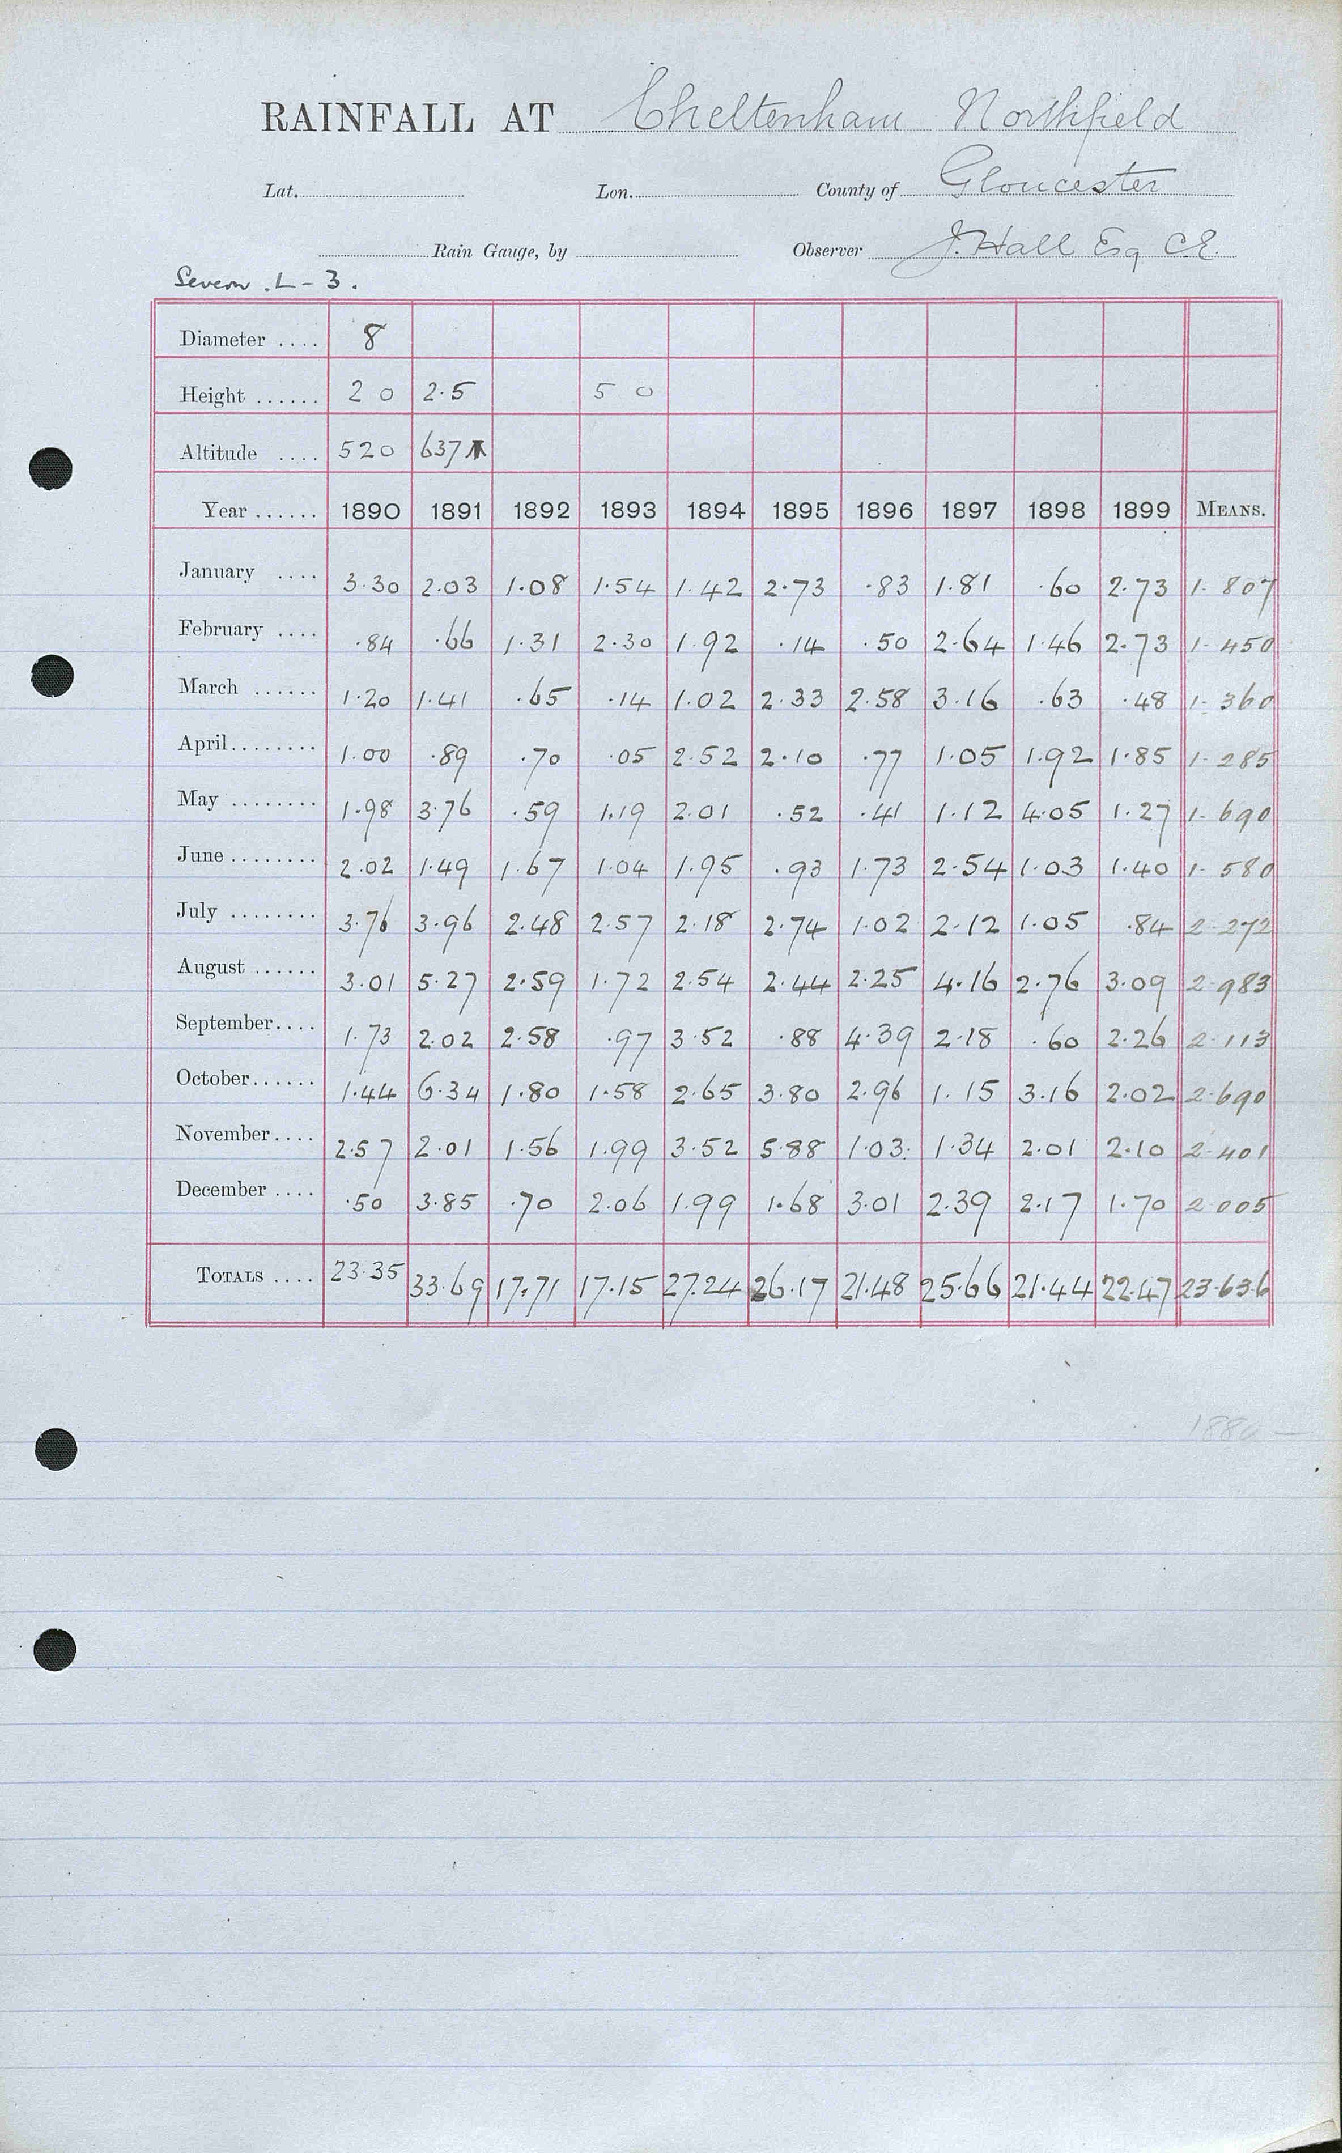 RAINFALL AT Cheltenham Northfield
Lat. Lon. County of Gloucester
Rain Gauge, by Observer J. Hall Esq C.E.
Severn . L - 3 .
Diameter .... 8
Height ...... 2 0 2.5 5 0
Altitude .... 520 637
Year ...... 1890 1891 1892 1893 1894 1895 1896 1897 1898 1899 MEANS.
January .... 3.30 2.03 1.08 1.54 1.42 2.73 .83 1.81 .60 2.73 1.807
February .... .84 .66 1.31 2.30 1.92 .14 .50 2.64 1.46 2.73 1.450
March ...... 1.20 1.41 .65 .14 1.02 2.33 2.58 3.16 .63 .48 1.360
April ........ 1.00 .89 .70 .05 2.52 2.10 .77 1.05 1.92 1.85 1.285
May ........ 1.98 3.76 .59 1.19 2.01 .52 .41 1.12 4.05 1.27 1.690
June ........ 2.02 1.49 1.67 1.04 1.95 .93 1.73 2.54 1.03 1.40 1.580
July ........ 3.76 3.96 2.48 2.57 2.18 2.74 1.02 2.12 1.05 .84 2.272
August ...... 3.01 5.27 2.59 1.72 2.54 2.44 2.25 4.16 2.76 3.09 2.983
September .... 1.73 2.02 2.58 .97 3.52 .88 4.39 2.18 .60 2.26 2.113
October ...... 1.44 6.34 1.80 1.58 2.65 3.80 2.96 1.15 3.16 2.02 2.690
November .... 2.57 2.01 1.56 1.99 3.52 5.88 1.03 1.34 2.01 2.10 2.401
December .... .50 3.85 .70 2.06 1.99 1.68 3.01 2.39 2.17 1.70 2.005
TOTALS .... 23.35 33.69 17.71 17.15 27.24 26.17 21.48 25.66 21.44 22.47 23.636
1880 —